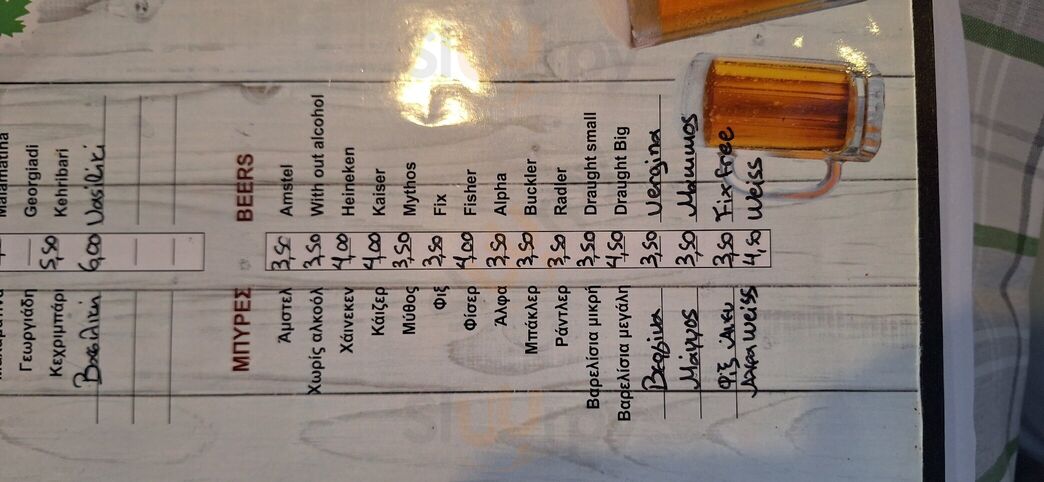 Γεωργιάδη Georgiadi
Κεχριμπάρι 5,50 Kehribari
Βασιλική 6,00 Vasiliki
ΜΠΥΡΕΣ BEERS
Άμστελ 3,50 Amstel
Χωρίς αλκοόλ 3,50 With out alcohol
Χάινεκεν 4,00 Heineken
Κάιζερ 4,00 Kaiser
Μύθος 3,50 Mythos
Φιξ 3,50 Fix
Φίσερ 4,00 Fisher
Άλφα 3,50 Alpha
Μπάκλερ 3,50 Buckler
Ράντλερ 3,50 Radler
Βαρελίσια μικρή 3,50 Draught small
Βαρελίσια μεγάλη 4,50 Draught Big
Βεργίνα 3,50 Vergina
Μάμμος 3,50 Mammos
Φιξ Άνευ 3,50 Fix free
Άλφα Weiss 4,50 Weiss